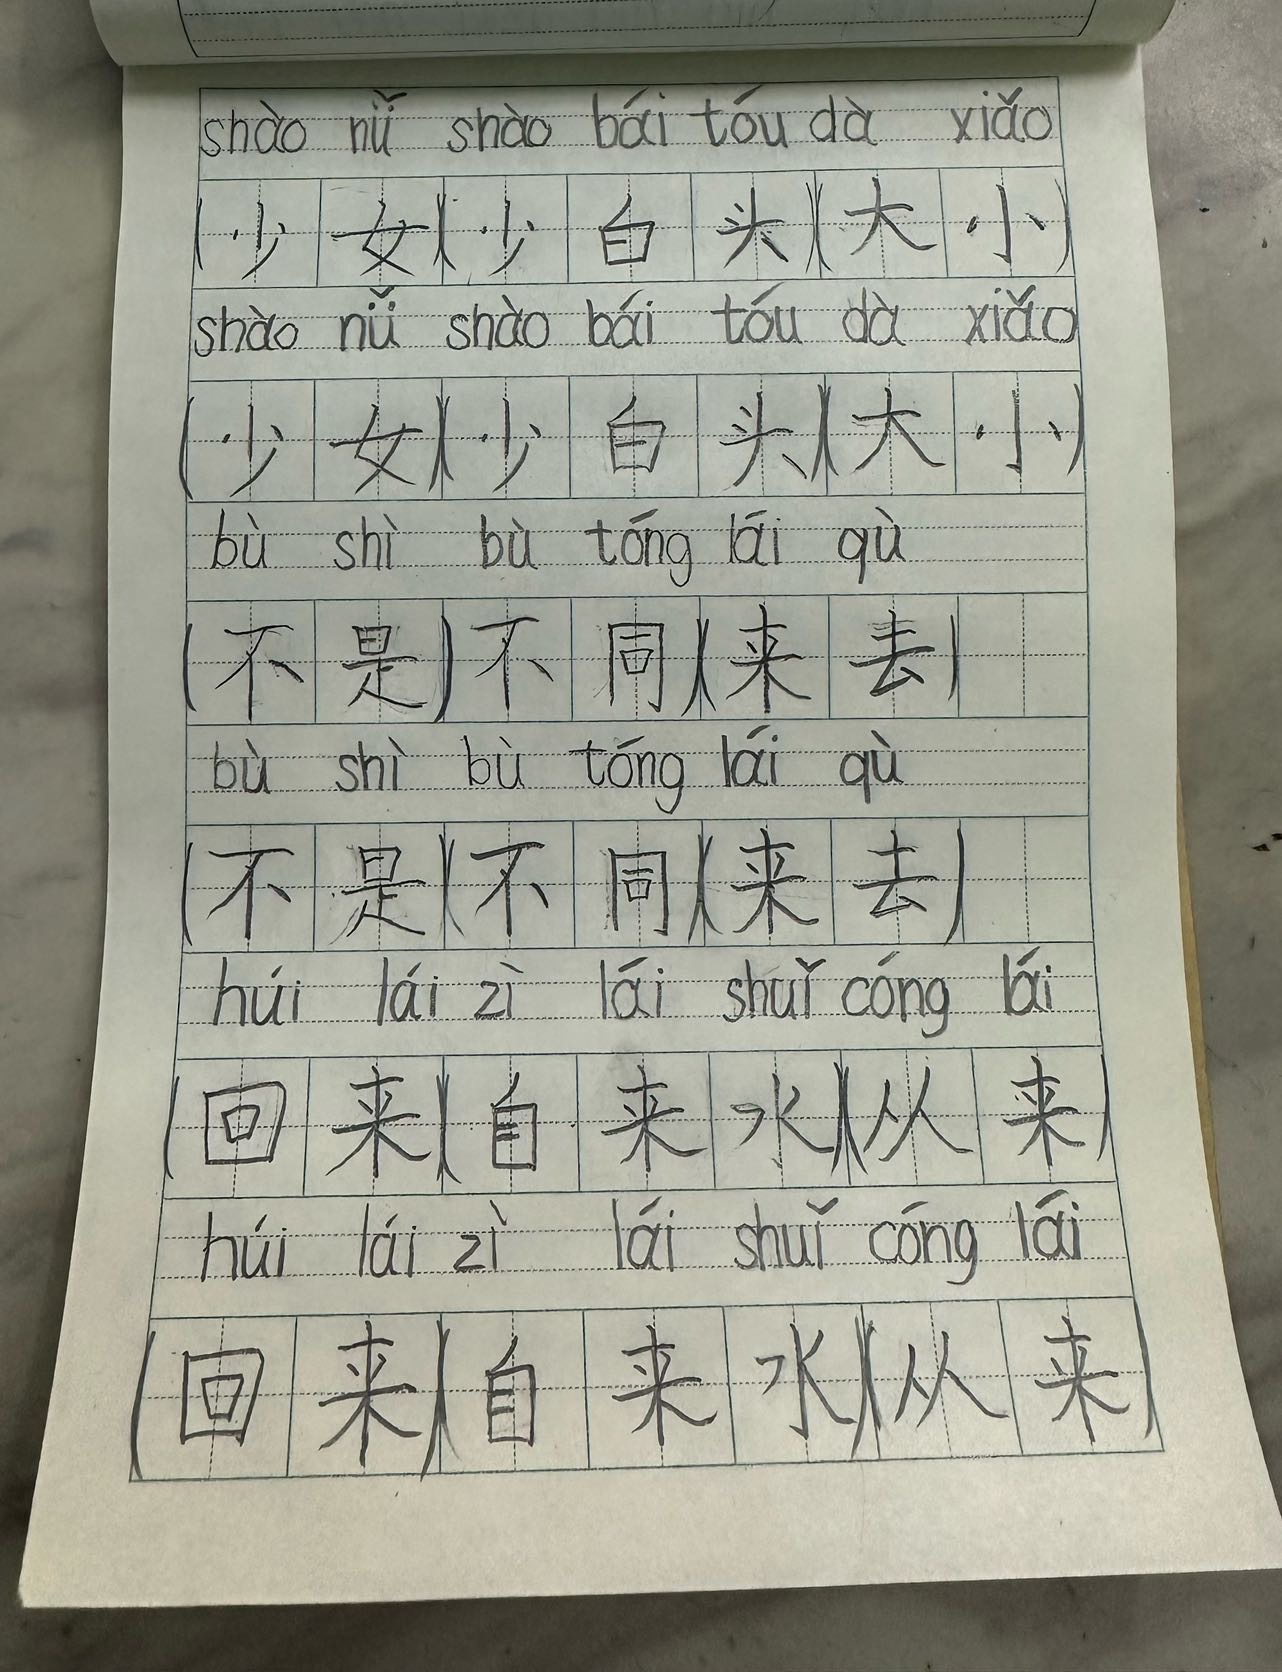 shào nǚ shào bái tóu dà xiǎo
(少女)(少白头)(大小)
shào nǚ shào bái tóu dà xiǎo
(少女)(少白头)(大小)
bù shì bù tóng lái qù
(不是)不同)(来去)
bù shì bù tóng lái qù
(不是)(不同)(来去)
húi lái zì lái shuǐ cóng lái
(回来)(自来水)(从来)
húi lái zì lái shuǐ cóng lái
(回来)(自来水)(从来)